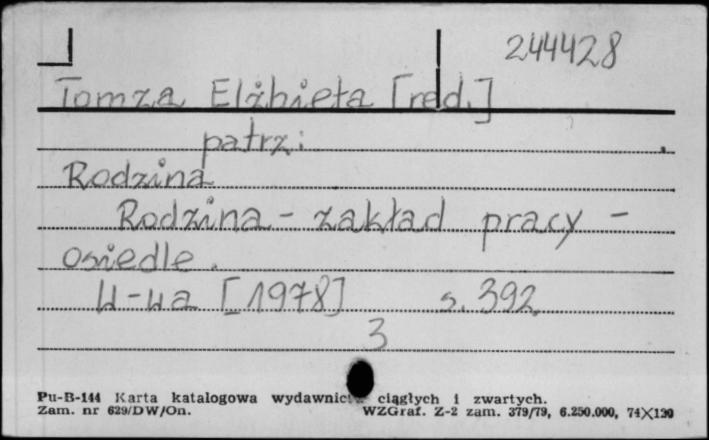 244428
Tomza Elżbieta [red.]
patrz:
Rodzina
Rodzina - zakład pracy -
osiedle.
W-wa [1978] s. 392
3
Pu-B-144 Karta katalogowa ciągłych i zwartych.
Zam. nr 629/DW/On. WZGraf. Z-2 zam. 379/79, 6.250.000, 74X120